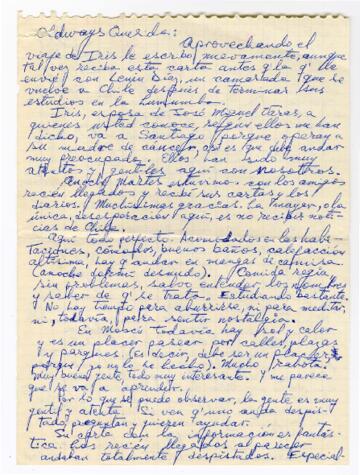 Always Querida:
Aprovechando el
viaje de Iris le escribo nuevamente, aunque
tal vez reciba esta carta antes q' la q' le
envié con Lenin Díaz, un camarada que se
vuelve a Chile después de terminar sus
estudios en la Lumumba.
Iris, esposa de José Miguel Varas, a
quienes usted conoce, según ellos me han
dicho, va a Santiago porque operan a
su madre de cáncer, así es que debe andar
muy preocupada. Ellos han sido muy
atentos y gentiles aquí con nosotros.
Anoche Martes estuvimos con los amigos
recién llegados y recibí sus cartas y los
diarios. Muchísimas gracias. La mayor, o la
única, desesperación aquí, es no recibir noti-
cias de Chile.
Aquí todo perfecto. Acomodados en las habi-
taciones, cómodas, buenos baños, calefacción
altísima, hay q' andar en mangas de camisa.
(Anoche dormí desnudo). Comida regia,
sin problemas, salvo entender los nombres
y saber de q' se trata. Estudiando bastante.
No hay tiempo para aburrirse, ni para meditar,
ni, todavía, para sentir nostalgia.
En Moscú todavía hay sol y calor
y es un placer pasear por calles, plazas
y parques. (Es decir, debe ser un placer
porque yo no lo he hecho). Mucho "rabota",
muy buena gente, todo muy interesante. Y me parece
que se va a aprender.
Por lo que se puede observar, la gente es muy
gentil y atenta. Si ven q' uno anda despis-
tado, preguntan y quieren ayudar.
Su carta con la información es fantás-
tica. Los recién llegados al parecer
andaban totalmente despistados. Especial-